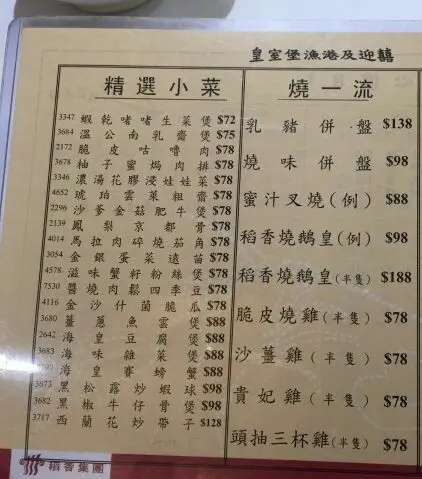 皇室堡漁港及迎囍
精選小菜
3347 蝦乾啫啫生菜煲 $72
3684 溫公南乳齋煲 $75
2172 脆皮咕嚕肉 $78
3678 柚子蜜焗肉排 $78
3346 濃湯花膠浸娃娃菜 $78
4652 琥珀雲菜粗齋 $78
2296 沙爹金菇肥牛煲 $78
2139 鳳梨京都骨 $78
4014 馬拉肉碎燒茄角 $78
3054 金銀蛋菜遠苗 $78
4578 滋味蟹籽粉絲煲 $78
7530 醬燒肉鬆四季豆 $78
4116 金沙什菌脆瓜 $78
3680 薑蔥魚雲煲 $88
2642 海皇豆腐煲 $88
3683 海味雜菜煲 $88
海皇賽螃蟹 $88
3673 黑松露炒蝦球 $98
3682 黑椒牛仔骨煲 $98
3717 西蘭花炒帶子 $128
燒一流
乳豬併盤 $138
燒味併盤 $98
蜜汁叉燒(例) $88
稻香燒鵝皇(例) $98
稻香燒鵝皇(半隻) $188
脆皮燒雞(半隻) $78
沙薑雞(半隻) $78
貴妃雞(半隻) $78
頭抽三杯雞(半隻) $78
稻香集團